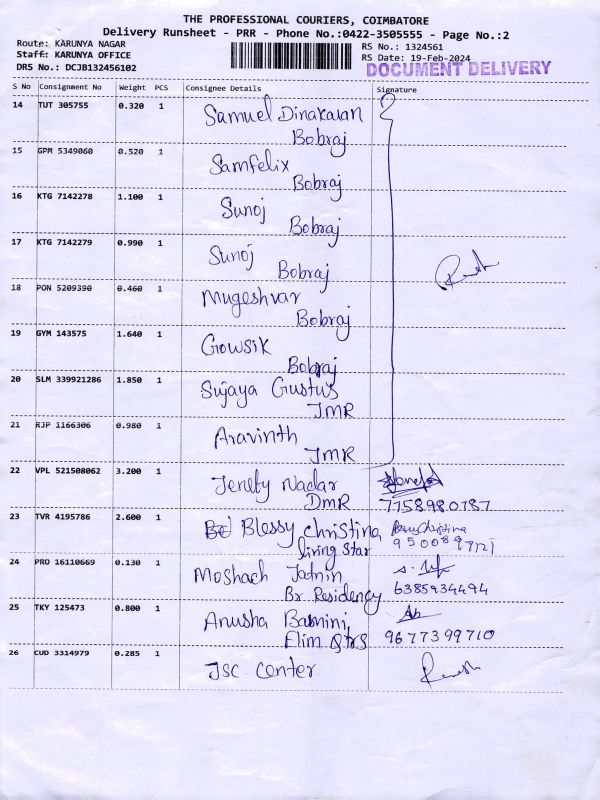 THE PROFESSIONAL COURIERS, COIMBATORE
Delivery Runsheet - PRR - Phone No.:0422-3505555 - Page No.:2
Route: KARUNYA NAGAR RS No.: 1324561
Staff: KARUNYA OFFICE RS Date: 19-Feb-2024
DRS No.: DCJB132456102 DOCUMENT DELIVERY
S No Consignment No Weight PCS Consignee Details Signature
14 TUT 305755 0.320 1 Samuel Dinakaran
Bobraj
15 GPM 5349060 0.520 1 Samfelix
Bobraj
16 KTG 7142278 1.100 1 Sunoj
Bobraj
17 KTG 7142279 0.990 1 Sunoj
Bobraj
18 PON 5209390 0.460 1 Mugeshvar
Bobraj
19 GYM 143575 1.640 1 Gowsik
Bobraj
20 SLM 339921286 1.850 1 Sujaya Gustus
JMR
21 RJP 1166306 0.980 1 Aravinth
JMR
22 VPL 521508062 3.200 1 Jeneby Nadar
DMR 7758980787
23 TVR 4195786 2.600 1 Blessy Christina
living Star
24 PRO 16110669 0.130 1 Moshach Jatnin
Br. Residency 6385934494
25 TKY 125473 0.800 1 Anusha
Elim Qtrs 9677399710
26 CUD 3314979 0.285 1 JSC Center